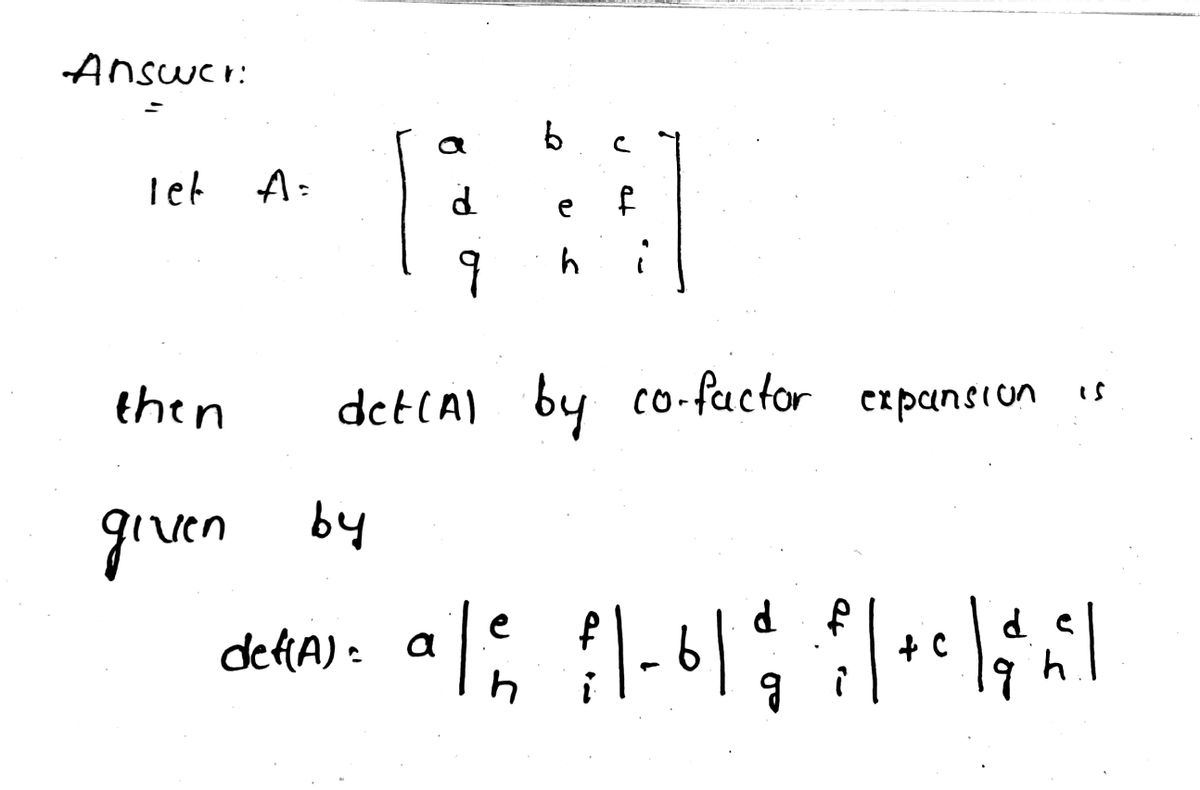 Answer:
let A = [ a b c
d e f
g h i ]
then det(A) by co-factor expansion is
given by
det(A) = a | e f | - b | d f | + c | d e |
h i g i g h